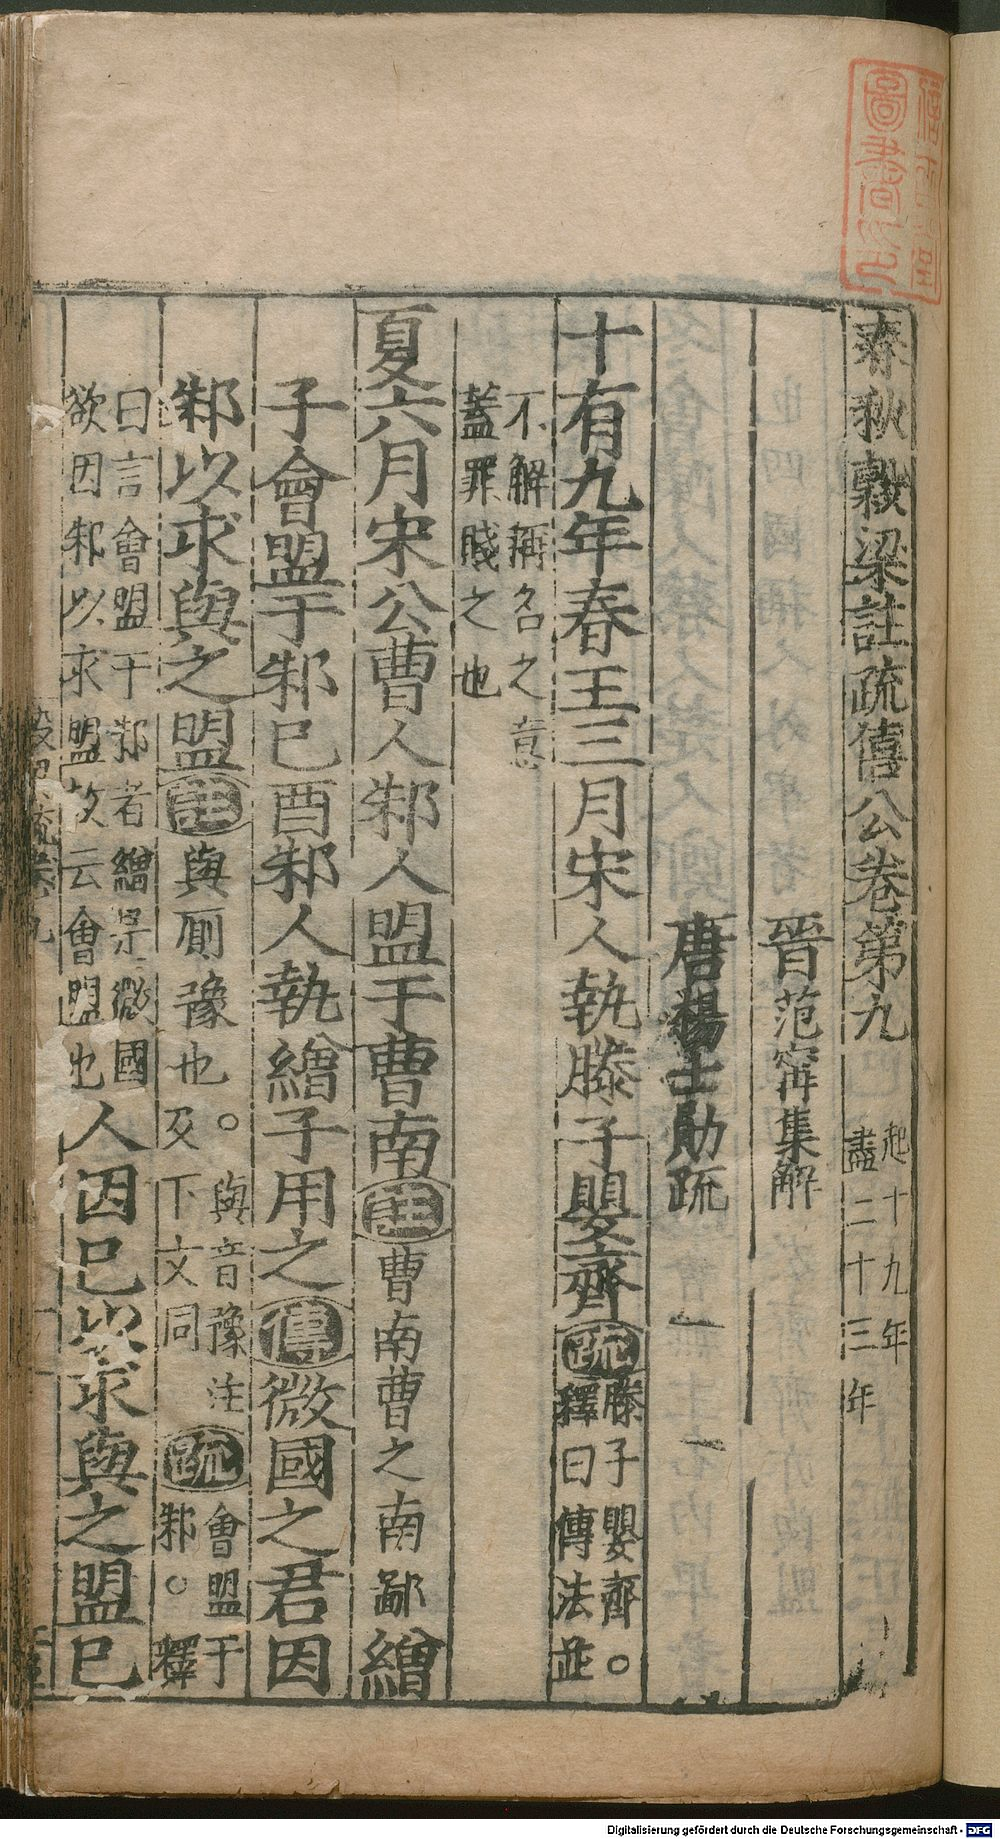 春秋穀梁註疏僖公卷第九 起十九年盡二十三年
晉范甯集解
唐楊士勛疏
十有九年春王三月宋人執滕子嬰齊疏滕子嬰齊○釋曰傳法並
不解稱名之意
蓋罪賤之也
夏六月宋公曹人邾人盟于曹南註曹南曹之南鄙繒
子會盟于邾已酉邾人執繒子用之傳微國之君因
邾以求與之盟註與厠豫也○與音豫注及下文同疏會盟于邾○釋
曰言會盟于邾者繒是微國
欲因邾以求盟故云會盟也人因已以求與之盟已
圖書
Digitalisierung gefördert durch die Deutsche Forschungsgemeinschaft - DFG